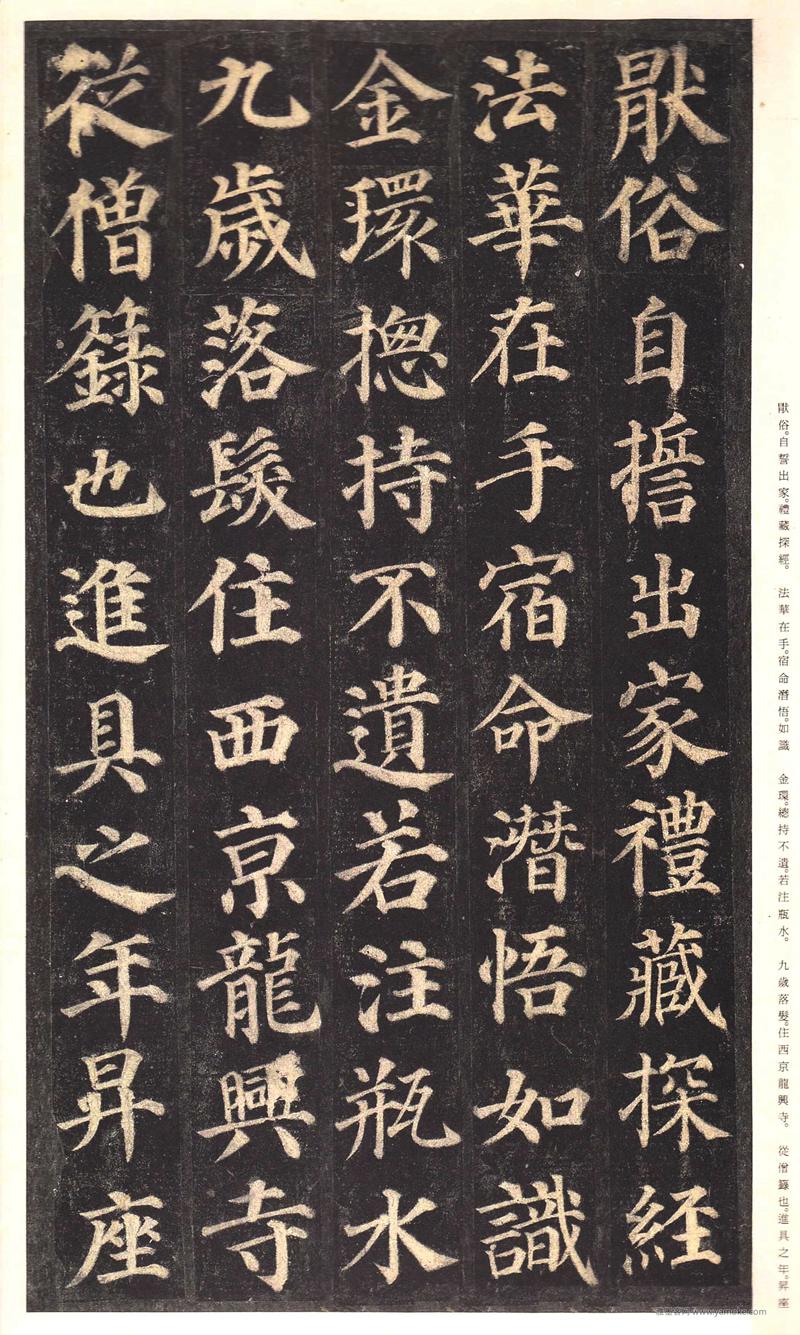 猒俗自誓出家禮藏探經
法華在手宿命潛悟如識
金環揔持不遺若注瓶水
九歲落髮住西亰龍興寺
從僧籙也進具之年昇座
猒俗。自誓出家。禮藏探經。 法華在手。宿命潛悟。如識 金環。總持不遺。若注瓶水。 九歲落髮。住西京龍興寺。 從僧籙也。進具之年。昇座